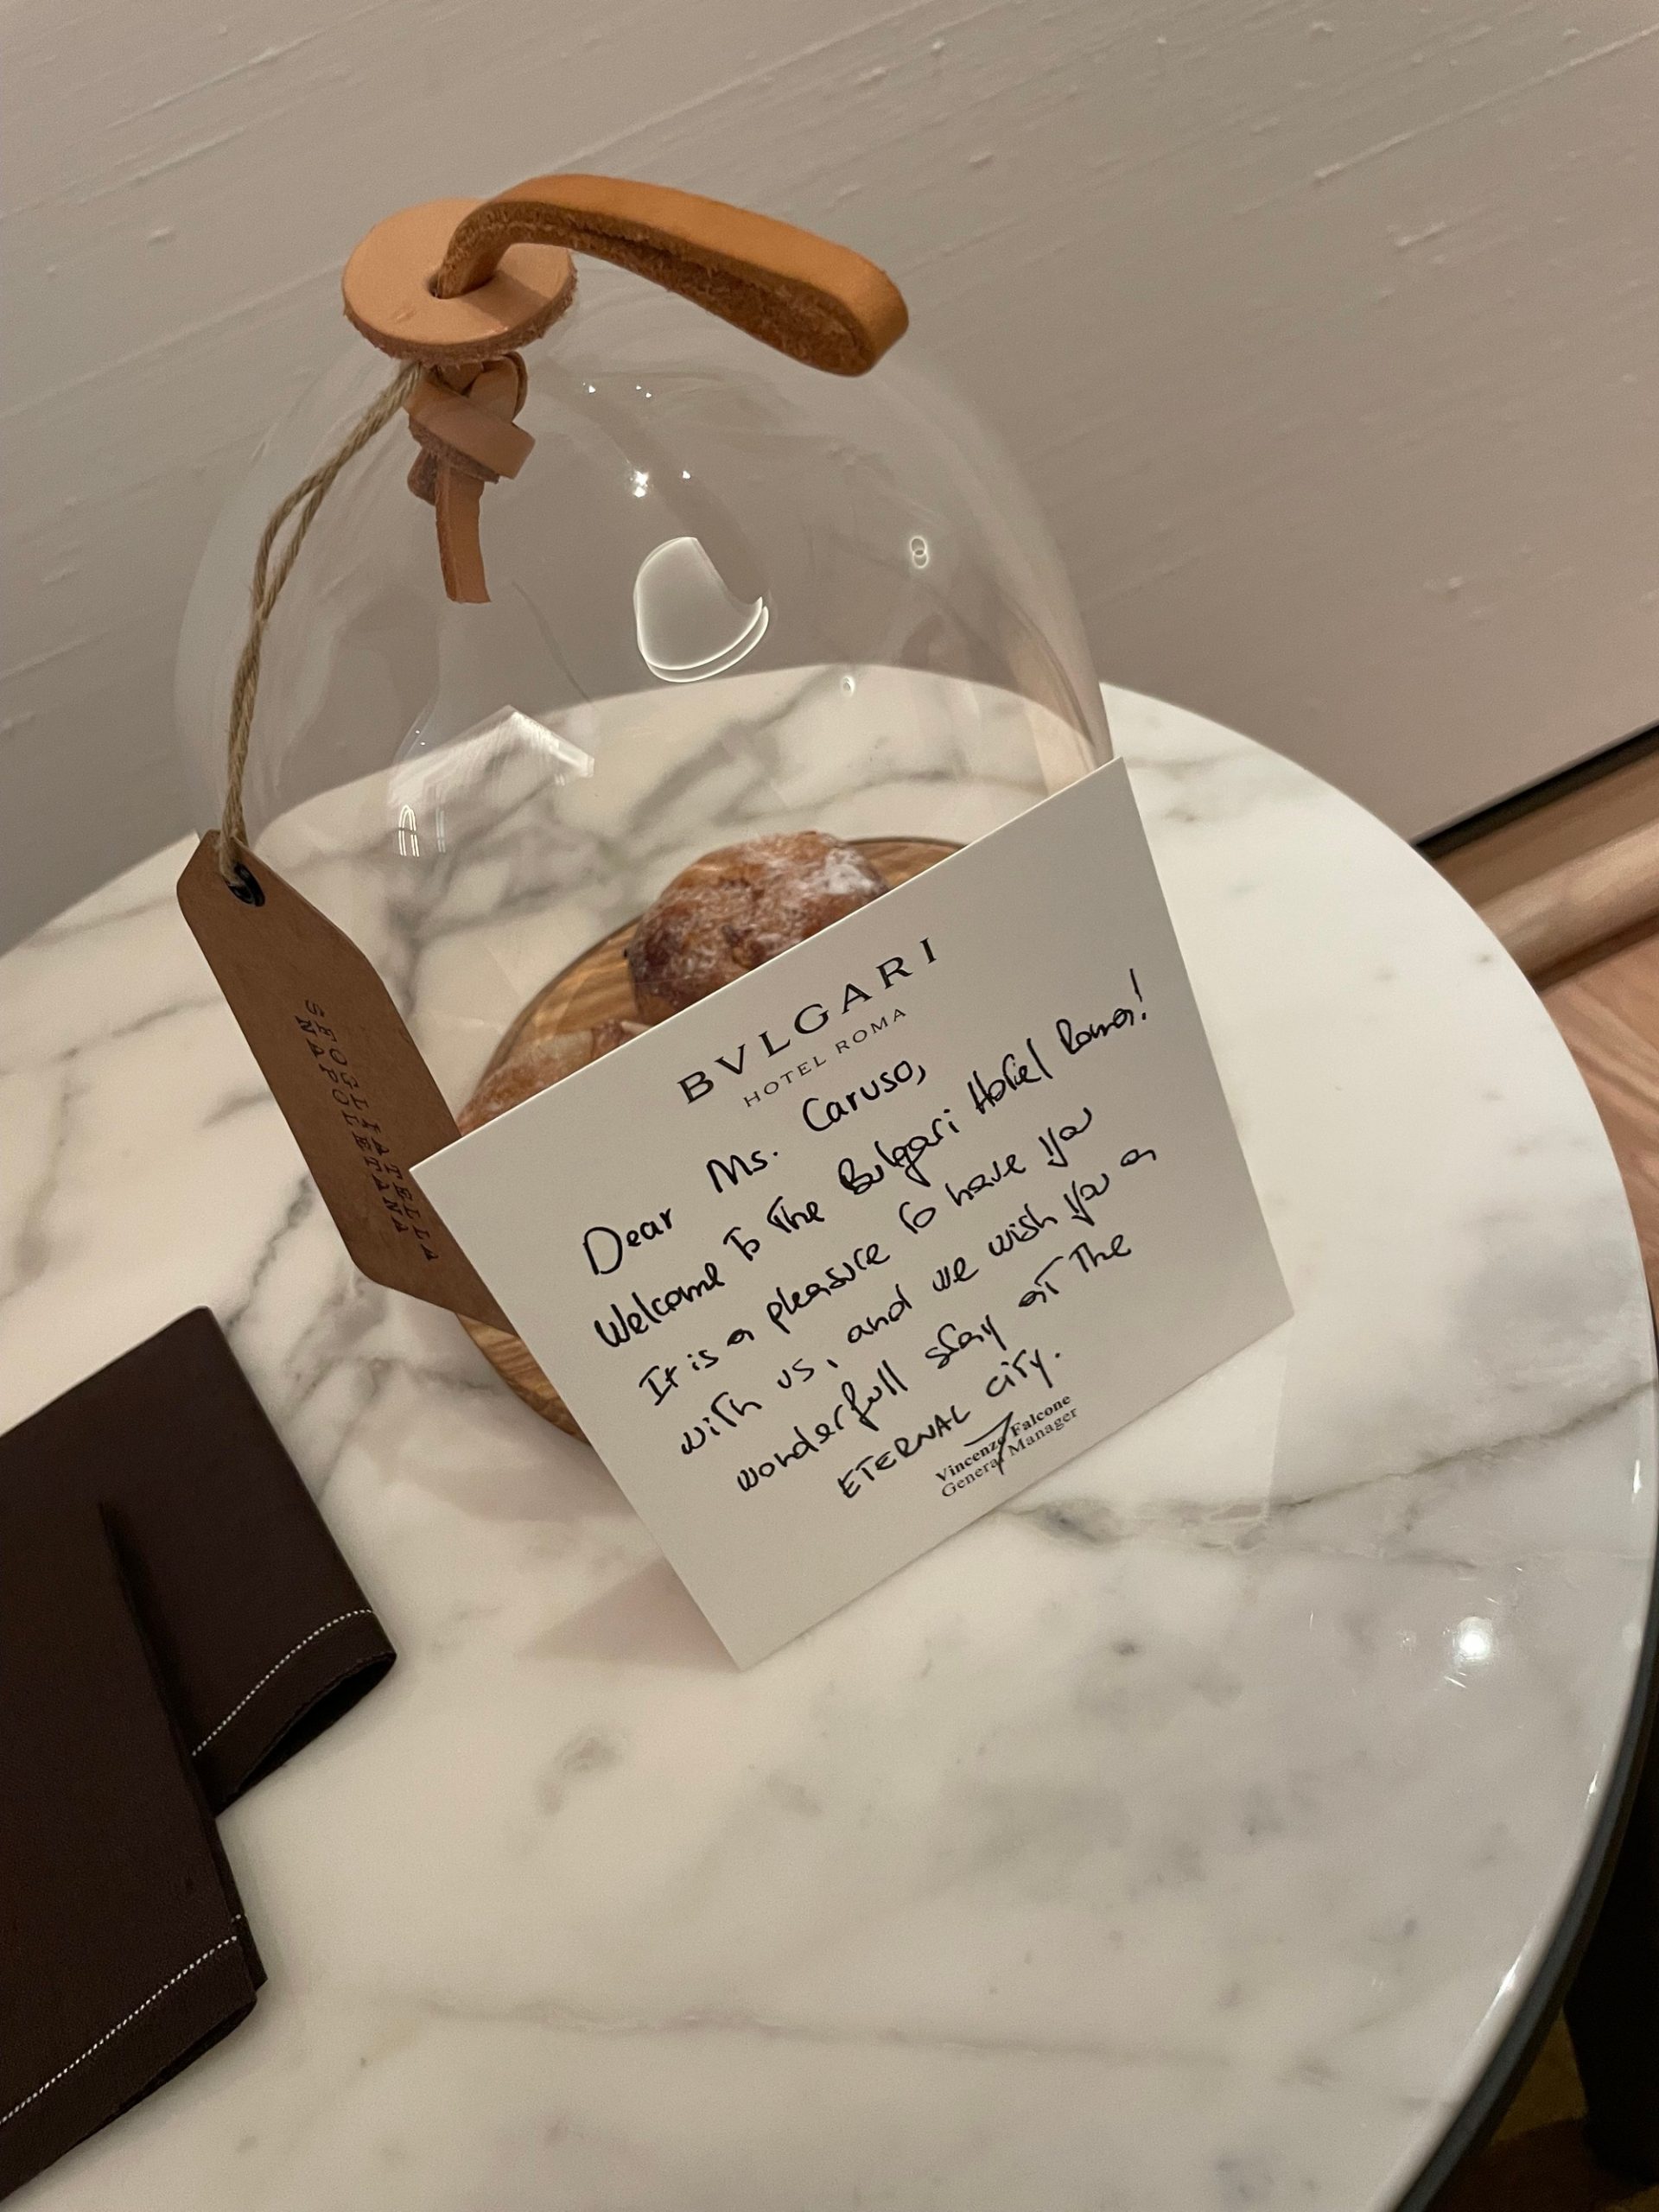 SFOGLIATELLA
NAPOLETANA
BVLGARI
HOTEL ROMA
Dear Ms. Caruso,
Welcome To The Bulgari Hotel Roma!
It is a pleasure to have you
with us, and we wish you a
wonderfull stay at The
ETERNAL City.
Vincenzo Falcone
General Manager